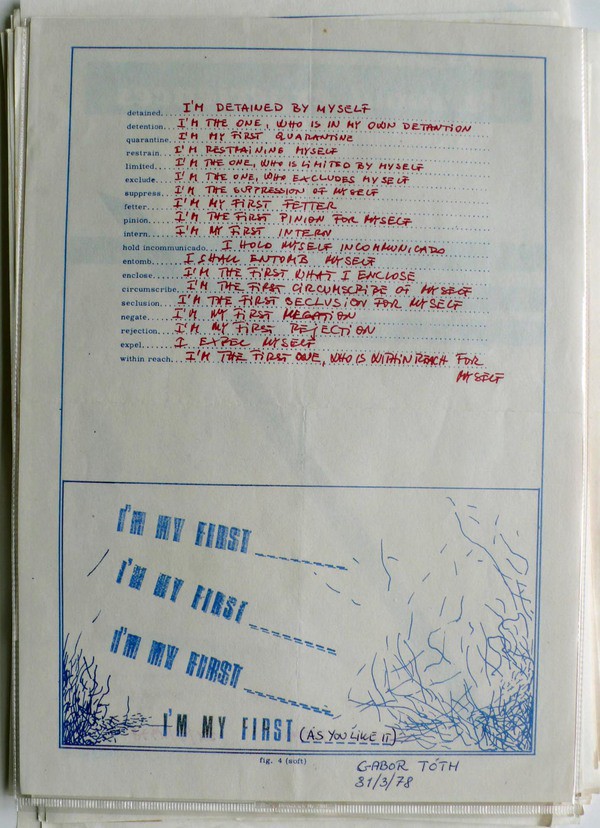 detained.... I'M DETAINED BY MYSELF
detention... I'M THE ONE, WHO IS IN MY OWN DETANTION
quarantine.. I'M MY FIRST QUARANTINE
restrain.... I'M RESTRAINING MYSELF
limited..... I'M THE ONE, WHO IS LIMITED BY MYSELF
exclude..... I'M THE ONE, WHO EXCLUDES MYSELF
suppress.... I'M THE SUPPRESSION OF MYSELF
fetter...... I'M MY FIRST FETTER
pinion...... I'M THE FIRST PINION FOR MYSELF
intern...... I'M MY FIRST INTERN
hold incommunicado.... I HOLD MYSELF INCOMMUNICADO
entomb...... I SHALL ENTOMB MYSELF
enclose..... I'M THE FIRST WHAT I ENCLOSE
circumscribe. I'M THE FIRST CIRCUMSCRIBE OF MYSELF
seclusion... I'M THE FIRST SECLUSION FOR MYSELF
negate...... I'M MY FIRST NEGATION
rejection... I'M MY FIRST REJECTION
expel....... I EXPEL MYSELF
within reach... I'M THE FIRST ONE, WHO IS WITHIN REACH FOR
MYSELF
I'M MY FIRST _______
I'M MY FIRST _______
I'M MY FIRST _______
I'M MY FIRST (AS YOU LIKE IT)
fig. 4 (soft)
GABOR TÓTH
31/3/78